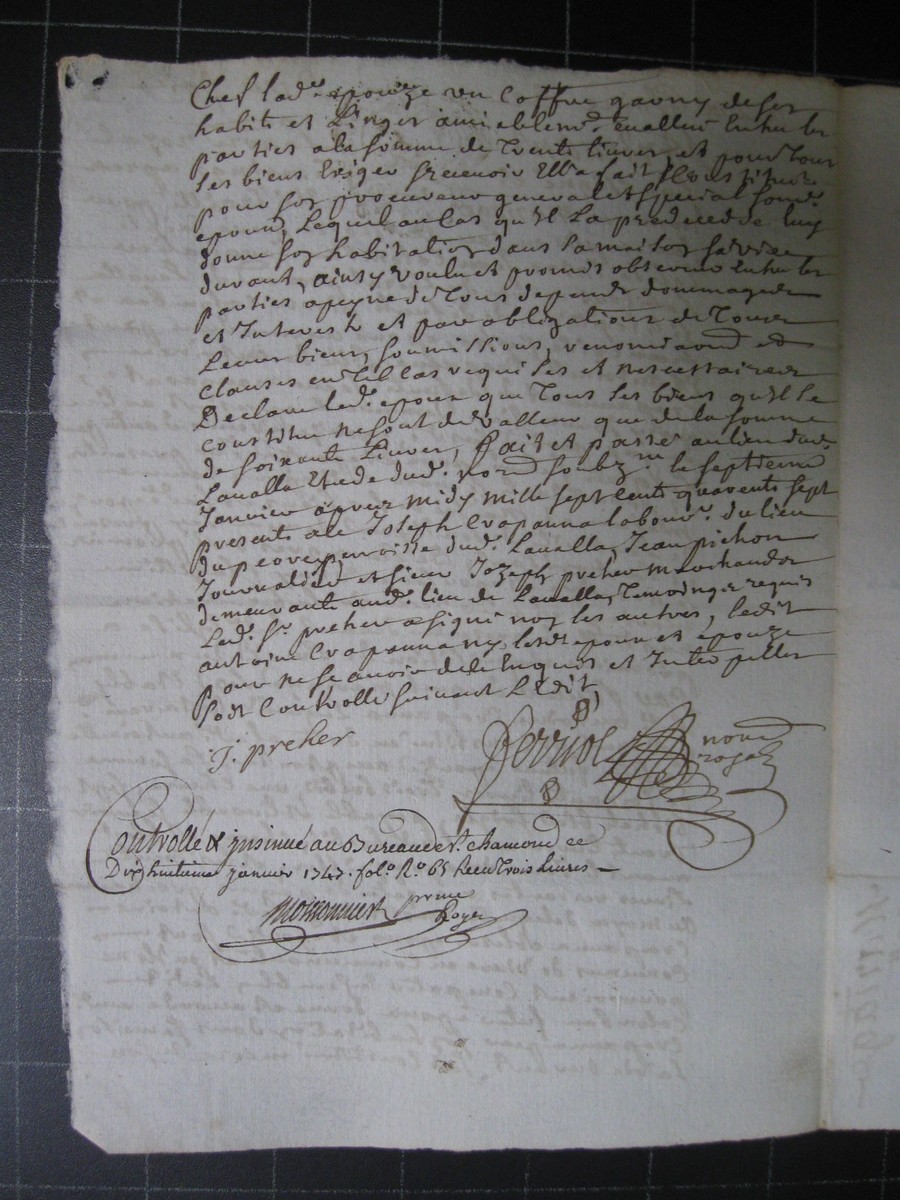 Chef lad.e epouze un Coffre garny de ses
habits et Linges amiablem.t Evallué Entre les
parties a la somme de Trente livres, et pour tous
ses biens Exiger Recevoir Ella fait Et Constitué
pour son procureur general et special son d.
epoux, Lequel au Cas qu'Il La predecede luy
donne son habitation dans sa maison sa vie
durant, ainsy voulu et promis observer Entre les
parties a peyne de Tous depens dommages
et Interests et par obligations de Tous
Leurs biens, soumissions, renonciaons et
Clauses en tel cas requises et necessaires
Declare led. epoux que Tous ses biens qu'Il se
Constitue ne sont de Valleur que de la somme
de soixante Livres, fait et passé au lieu de
Lavalla Etude dud. no.re soubz.né le septieme
Janvier apres midy mille sept Cents quarente sept
presents a ce Joseph Crapanna labour.r du lieu
du peorey parroisse dud. Lavalla, Jean pichon
Journalier et sieur Jozeph preher Marchand
demeurants aud. lieu de Lavalla, Temoings requis
Led. S.r preher a signé non les autres, ledit
antoine Crapanna ny lesd. epoux et epouze
pour ne scavoir de ce Enquis et Interpellés
soit Controllé suivant L'Edit,
J. preher
Perriol no.re
royal
Controllé & jnsinué au Bureau de St. chamond ce
Dix huitieme janvier 1747. fol.o R.o 65 Recu Trois Livres